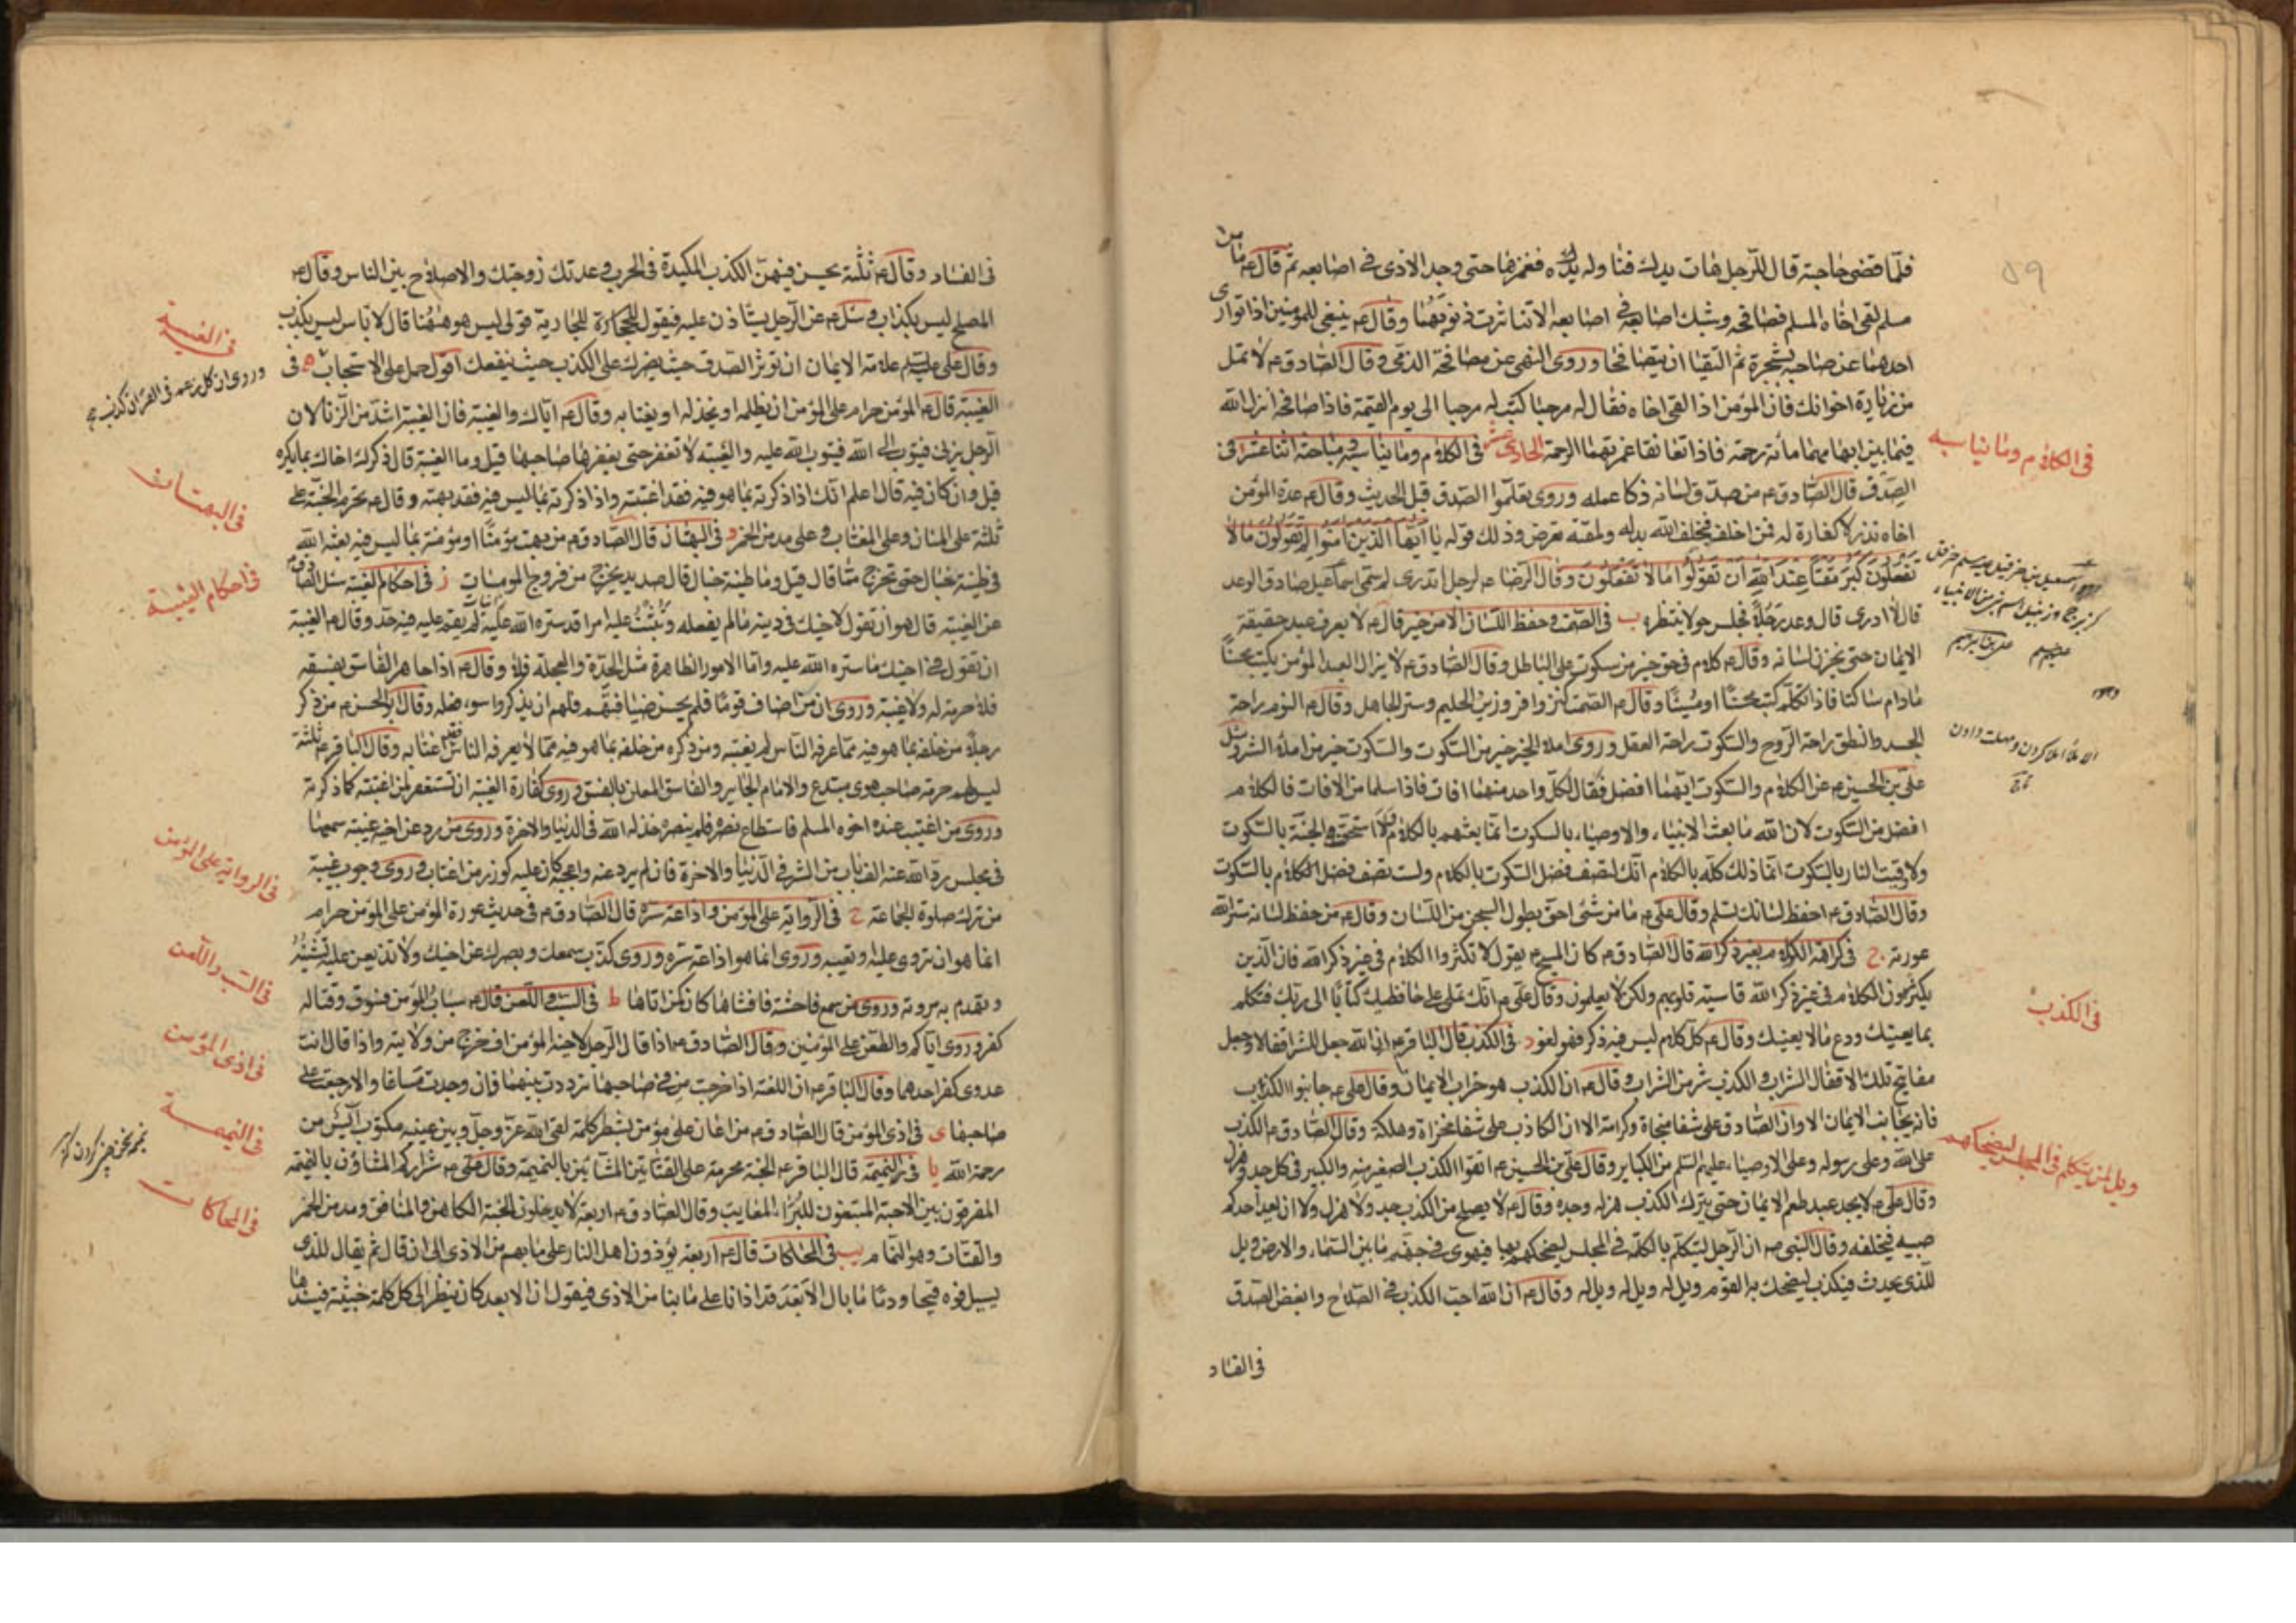 فلما قضى حاجته قال للرجل هات يدك فناوله يده فغمزها حتى وجد الاذى في اصابعه ثم قال ع ما من
مسلم لقى اخاه المسلم فصافحه وشبك اصابعه في اصابعه الا تناثرت ذنوبهما وقال ع ينبغي للمومنين اذا توارى
احدهما عن صاحبه بشجرة ثم التقيا ان يتصافحا وروى النهي عن مصافحة الذمي وقال الصادق ع لا تمل
من زيارة اخوانك فان المؤمن اذا لقى اخاه فقال له مرحبا كتب له مرحبا الى يوم القيمة فاذا صافحه انزل الله
فيما بين ابهامهما مائة رحمة فاذا تعانقا غمرتهما الرحمة الحادي عشر في الكلام وما يناسبه فيه مباحث اثنا عشر ا في
الصدق قال الصادق ع من صدق لسانه زكا عمله وروى تعلموا الصدق قبل الحديث وقال ع عدة المؤمن
اخاه نذر لا كفارة له فمن اخلف فبخلف الله بدا وله ولمقته تعرض وذلك قوله يا ايها الذين امنوا لم تقولون ما لا
تفعلون كبر مقتا عند الله ان تقولوا ما لا تفعلون وقال الرضا ع لرجل اتدري لم سمى اسماعيل صادق الوعد
قال لا ادرى قال وعد رجلا فجلس حولا ينتظره ب في الصمت وحفظ اللسان الا من خير قال ع لا يعرف عبد حقيقة
الايمان حتى يخزن لسانه وقال ع كلام في حق خير من سكوت على الباطل وقال الصادق ع لا يزال العبد المؤمن يكتب محسنا
مادام ساكتا فاذا تكلم كتب محسنا او مسيئا وقال ع الصمت كنز وافر وزين الحليم وستر الجاهل وقال ع النوم راحة
الجسد والنطق راحة الروح والسكوت راحة العقل وروى املاء الخير خير من السكوت والسكوت خير من املاء الشر وسئل
على بن الحسين ع عن الكلام والسكوت ايهما افضل فقال لكل واحد منهما افات فاذا سلما من الافات فالكلام
افضل من السكوت لان الله ما بعث الانبياء والاوصياء بالسكوت انما بعثهم بالكلام ولا استحقت الجنة بالسكوت
ولا وقيت النار بالسكوت انما ذلك كله بالكلام انك لتصف فضل السكوت بالكلام ولست تصف فضل الكلام بالسكوت
وقال الصادق ع احفظ لسانك تسلم وقال على ع ما من شئ احق بطول السجن من اللسان وقال ع من حفظ لسانه ستر الله
عورته ج في كراهة الكلام بغير ذكر الله قال الصادق ع كان المسيح ع يقول لا تكثروا الكلام في غير ذكر الله فان الذين
يكثرون الكلام في غير ذكر الله قاسية قلوبهم ولكن لا يعلمون وقال على ع انك تملى على حافظيك كتابا الى ربك فتكلم
بما يعنيك ودع ما لا يعنيك وقال ع كل كلام ليس فيه ذكر فهو لغو د في الكذب قال الباقر ع ان الله جعل للشر اقفالا وجعل
مفاتيح تلك الاقفال الشراب والكذب شر من الشراب وقال ع ان الكذب هو خراب الايمان وقال على ع جانبوا الكذب
فانه يجانب الايمان الا وان الصادق على شفا منجاة وكرامة الا ان الكاذب على شفا مخزاة وهلكة وقال الصادق ع الكذب
على الله وعلى رسوله وعلى الاوصياء عليهم السلم من الكباير وقال على بن الحسين ع اتقوا الكذب الصغير منه والكبير في كل جد وهزل
وقال على ع لا يجد عبد طعم الايمان حتى يترك الكذب هزله وجده وقال ع لا يصلح من الكذب جد ولا هزل ولا ان يعد احدكم
صبيه فيخلفه وقال النبي ص ان الرجل ليتكلم بالكلمة في المجلس ليضحكهم بها فيهوى في جهنم ما بين السماء والارض ويل
للذي يحدث فيكذب ليضحك به القوم ويل له ويل له ويل له وقال ع ان الله احب الكذب في الصلاح وابغض الصدق
في الفساد
في الكلام وما يناسبه
في الكذب
ويل لمن يتكلم في المجلس ليضحكهم
في الفساد وقال ع ثلثة يحسن فيهن الكذب المكيدة في الحرب وعدتك زوجتك والاصلاح بين الناس وقال ع
المصلح ليس بكذاب وسئل ع عن الرجل يستاذن عليه فيقول للجارية قولى ليس هو ههنا قال لا باس ليس بكذب
وقال على عليه السلم علامة الايمان ان توثر الصدق حيث يضرك على الكذب حيث ينفعك اقول حمل على الاستحباب ه في
الغيبة قال ع المؤمن حرام على المؤمن ان يظلمه او يخذله او يغتابه وقال ع اياك والغيبة فان الغيبة اشد من الزنا لان
الرجل يزني فيتوب الى الله فيتوب الله عليه والغيبة لا تغفر حتى يغفرها صاحبها قيل وما الغيبة قال ذكرك اخاك بما يكره
قيل وان كان فيه قال اعلم انك اذا ذكرته بما هو فيه فقد اغتبته واذا ذكرته بما ليس فيه فقد بهته وقال ع تحرم الجنة على
ثلثة على المنان وعلى المغتاب وعلى مدمن الخمر و في البهتان قال الصادق ع من بهت مؤمنا او مؤمنة بما ليس فيه بعثه الله
في طينة خبال حتى يخرج مما قال قيل وما طينة خبال قال صديد يخرج من فروج المومسات ز في احكام الغيبة سئل الصادق ع
عن الغيبة قال هو ان تقول لاخيك في دينه ما لم يفعله وتبث عليه امرا قد ستره الله عليه لم يقم عليه فيه حد وقال ع الغيبة
ان تقول في اخيك ما ستره الله عليه واما الامور الظاهرة مثل الحدة والعجلة فلا وقال ع اذا جاهر الفاسق بفسقه
فلا حرمة له ولا غيبة وروى ان من اضاف قوما فلم يحسن ضيافتهم فلهم ان يذكروا سوء فعله وقال ابو الحسن ع من ذكر
رجلا من خلفه بما هو فيه مما عرفه الناس لم يغتبه ومن ذكره من خلفه بما هو فيه مما لا يعرفه الناس فقد اغتابه وقال الباقر ع ثلثة
ليس لهم حرمة صاحب هوى مبتدع والامام الجاير والفاسق المعلن بالفسق وروى كفارة الغيبة ان تستغفر لمن اغتبته كما ذكرته
وروى من اغتيب عنده اخوه المسلم فاستطاع نصره فلم ينصره خذله الله في الدنيا والاخرة وروى من رد عن اخيه غيبة سمعها
في مجلس رد الله عنه الف باب من الشر في الدنيا والاخرة فان لم يرد عنه واعجبه كان عليه كوزر من اغتاب وروى وجوب غيبة
من ترك صلوة الجماعة ح في الرواية على المؤمن واذاعة سره قال الصادق ع في حديث عورة المؤمن على المؤمن حرام
انما هو ان تروى عليه او تعيبه وروى انما هو اذاعة سره وروى كذب سمعك وبصرك عن اخيك ولا تذيعن عليه شيئا تشينه
وتهدم به مروته وروى من سمع فاحشة فافشاها كان كمن اتاها ط في السب واللعن قال ع سباب المؤمن فسوق وقتاله
كفر وروى اياكم والطعن على المؤمنين وقال الصادق ع اذا قال الرجل لاخيه المؤمن اف خرج من ولايته واذا قال انت
عدوى كفر احدهما وقال الباقر ع ان اللعنة اذا خرجت من في صاحبها ترددت بينهما فان وجدت مساغا والا رجعت على
صاحبها ى في اذى المؤمن قال الصادق ع من اعان على مؤمن بشطر كلمة لقى الله عز وجل وبين عينيه مكتوب آيس من
رحمة الله يا في النميمة قال الباقر ع الجنة محرمة على القتاتين المشائين بالنميمة وقال على ع شراركم المشاؤن بالنميمة
المفرقون بين الاحبة المبتغون للبراء المعايب وقال الصادق ع اربعة لا يدخلون الجنة الكاهن والمنافق ومدمن الخمر
والقتات وهو النمام يب في المحاكات قال ع اربعة يؤذون اهل النار على ما بهم من الاذى الى ان قال ثم يقال للذى
يسيل فوه قيحا ودما ما بال الابعد قد اذانا على ما بنا من الاذى فيقول ان الابعد كان ينظر الى كل كلمة خبيثة فيسندها
في الغيبة
وروى ان كل زعم في القران كذب
في البهتان
في احكام الغيبة
في الرواية على المؤمن
في السب واللعن
في اذى المؤمن
في النميمة
في المحاكات